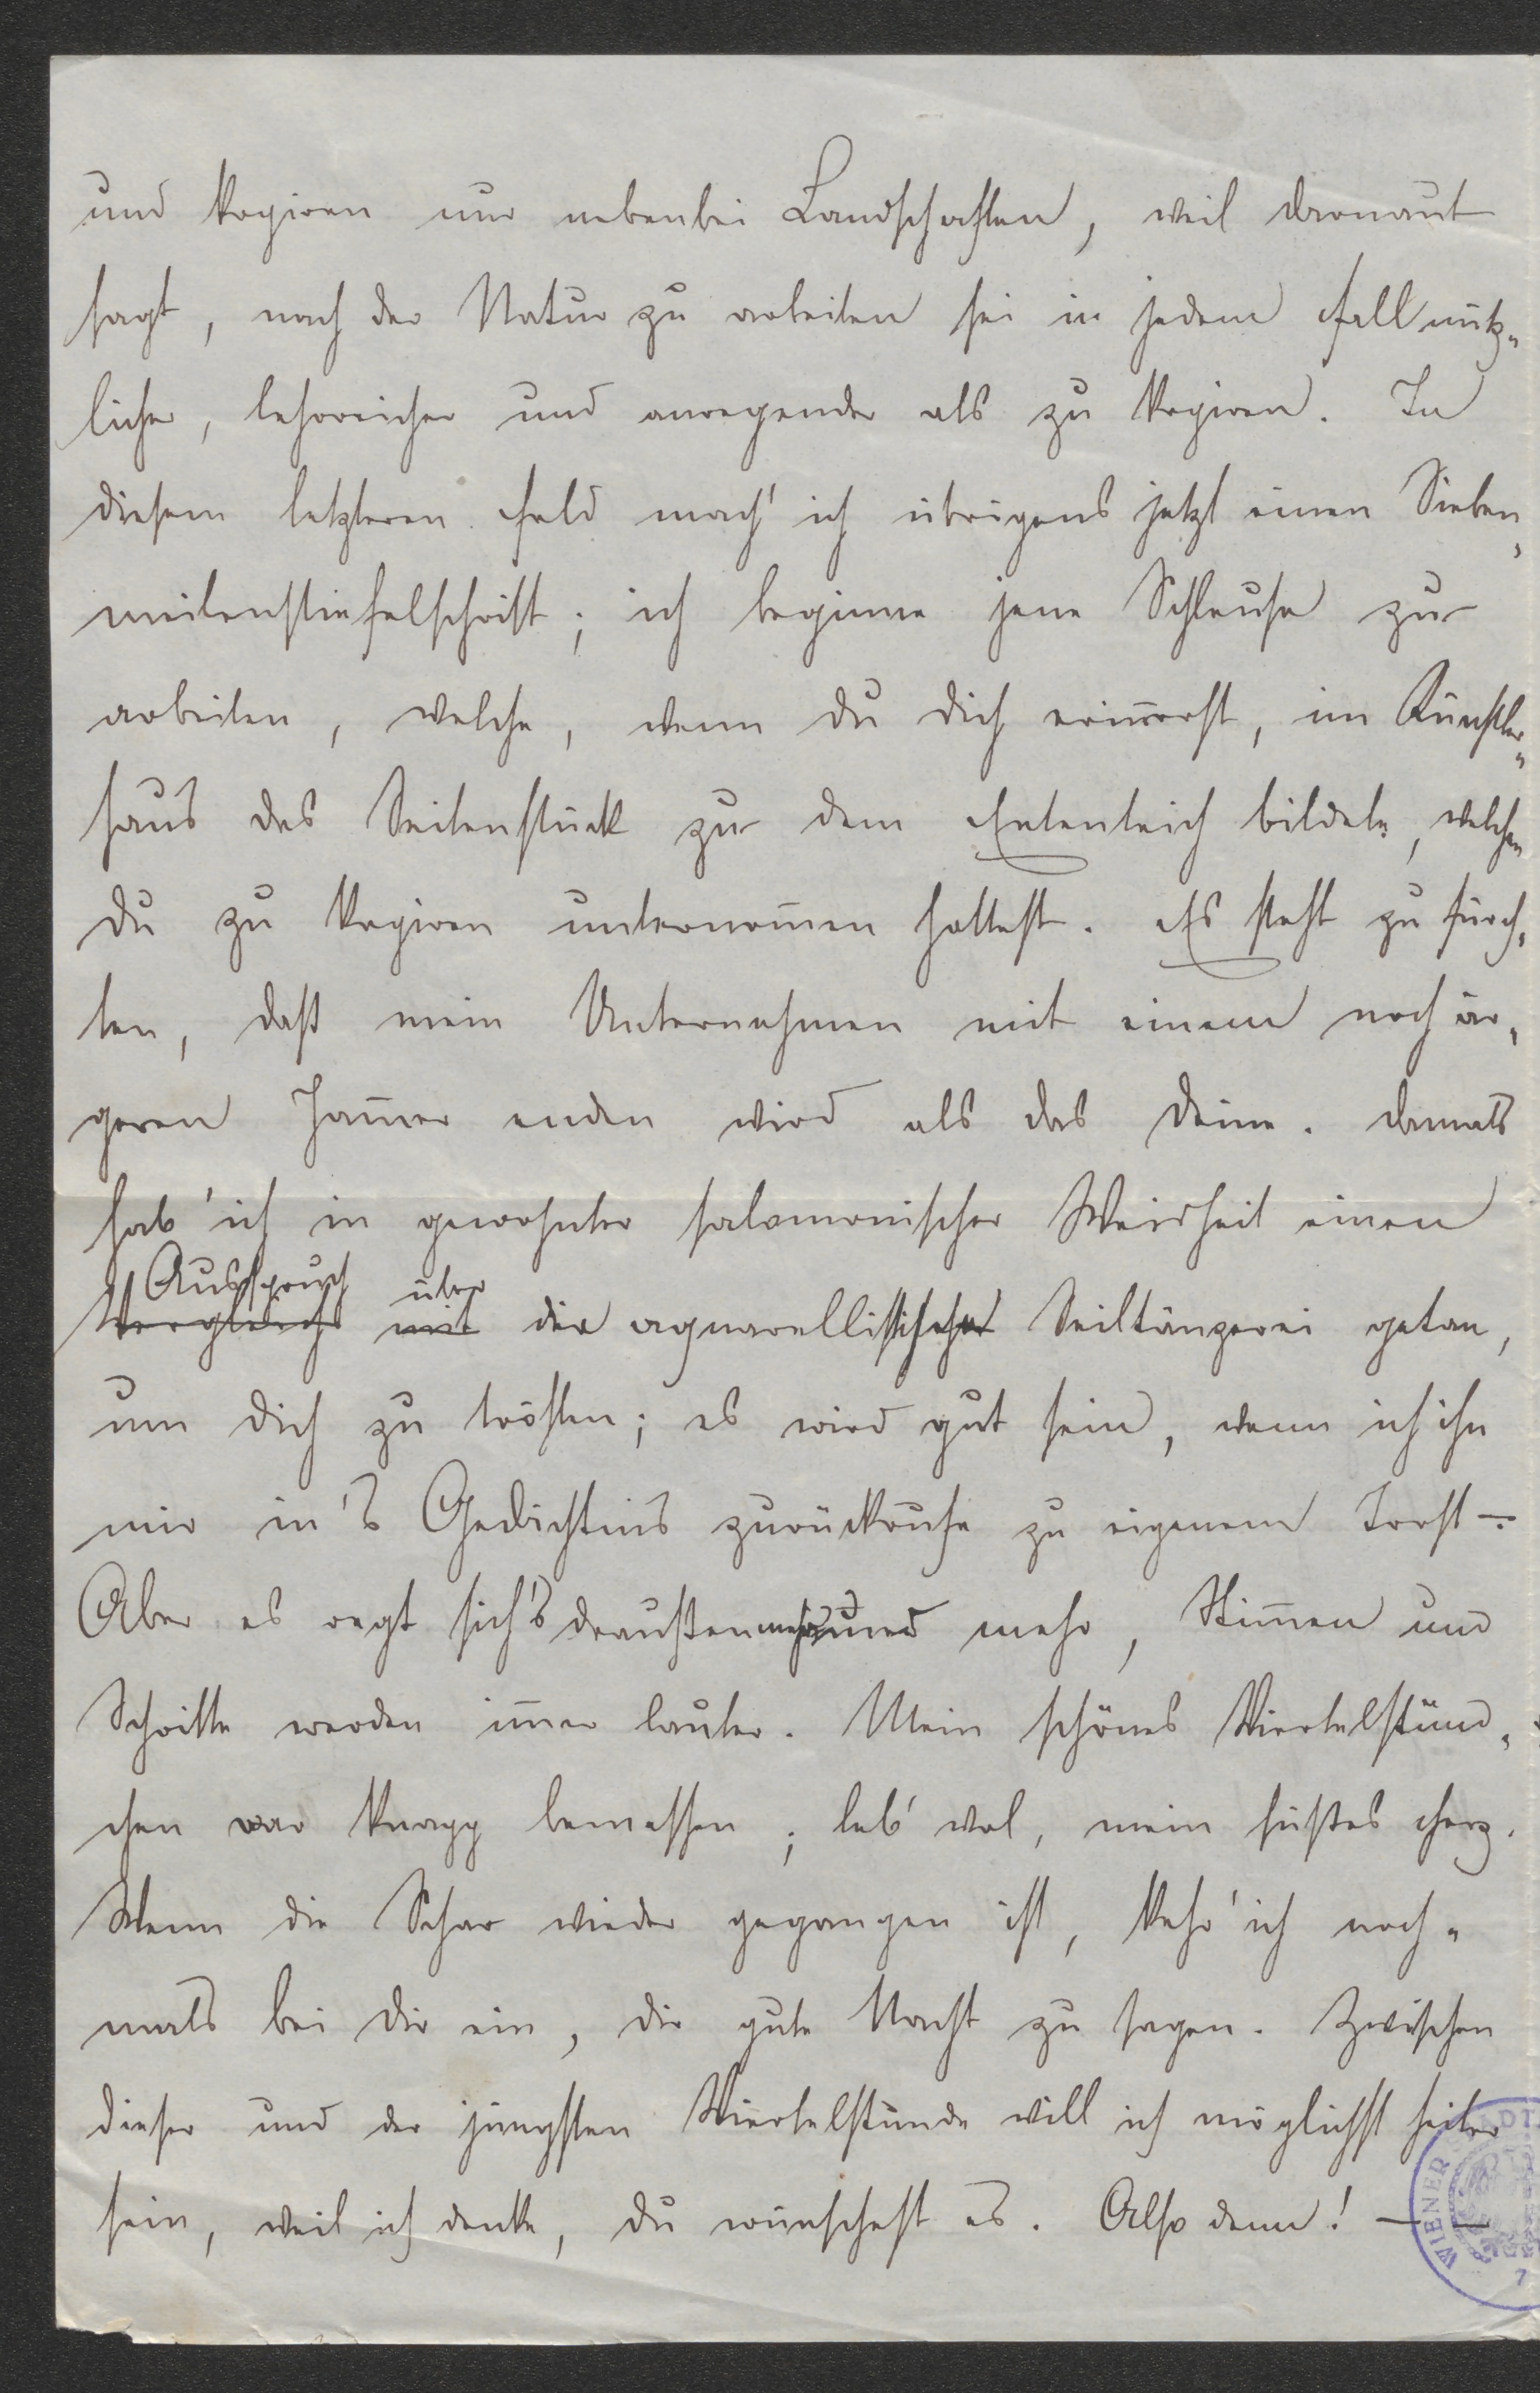 und kopiren nur nebenbei Landschaften, weil Darnaut
sagt, nach der Natur zu arbeiten sei in jedem Fall nütz-
licher, lehrreicher und anregender als zu kopiren. In
diesem letzteren Feld mach' ich übrigens jetzt einen Sieben-
meilenstiefelschritt; ich beginne jene Schleuse zu
arbeiten, welche, wenn du dich erin̄erst, im Künstler-
haus das Seitenstück zu dem Ententeich bildete, welchen
du zu kopiren unternom̄en hattest. Es steht zu fürch-
ten, daß mein Unternehmen mit einem noch är-
geren Jam̄er enden wird als das deine. Damals
hab' ich in gewohnter salomonischer Weisheit einen
Ausspruch über
Vergleich mit die aquarellistische Seiltänzerei getan,
um dich zu trösten; es wird gut sein, wenn ich ihn
mir in's Gedächtnis zurückrufe zu eigenem Trost –.
Aber es regt sich's draußen mehr und mehr, Stim̄en und
Schritte werden im̄er lauter. Mein schönes Viertelstünd-
chen war knapp bemessen; leb' wol, mein süßes Herz.
Wenn die Schar wieder gegangen ist, kehr' ich noch-
mals bei dir ein, dir gute Nacht zu sagen. Zwischen
dieser und der jüngsten Viertelstunde will ich möglichst heiter
sein, weil ich denke, du wünschest es. Also denn! – –
WIENER STADT